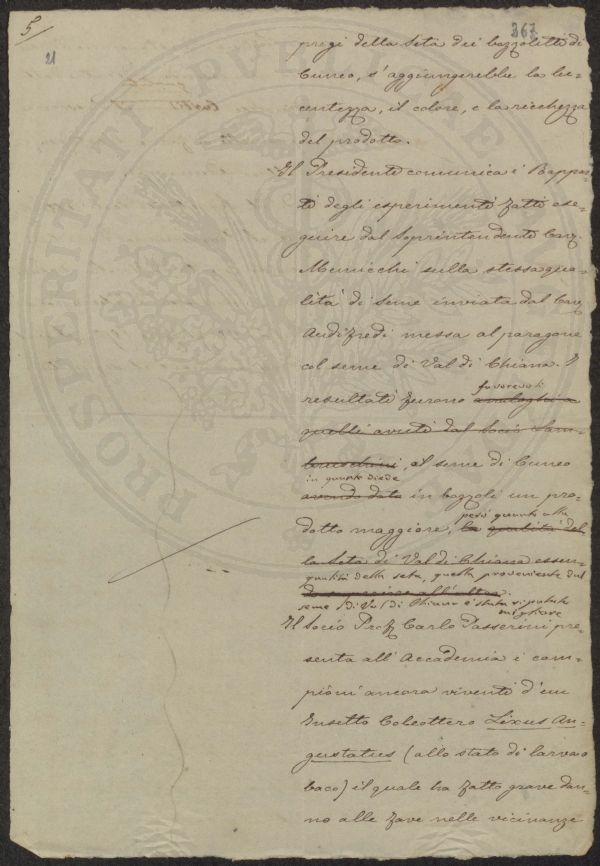 5/
367
21
pregi della Seta dei bozzoletti di
Cuneo, s'aggiungerebbe la lu-
centezza, il colore, e la ricchezza
del prodotto.
Il Presidente comunica i Rappor-
ti degli esperimenti fatti ese-
guire dal Soprintendente Cav.
sulla stessa qua-
lità di seme inviata dal Cav.
Audifredi messa al paragone
col seme di Val di Chiana. I
favorevoli
resultati furono analoghi a
quelli avuti dal Socio Lam-
bruschini, al seme di Cuneo
in quanto diede
avendo dato in bozzoli un pro-
però quanto alla
dotto maggiore, la qualità del
la Seta di Val di Chiana essen-
qualità della seta, quella proveniente dal
seme di Val di Chiana è stata reputata
migliore
Il Socio Prof. Carlo Passerini pre-
senta all'Accademia i cam-
pioni ancora viventi d'un
Insetto Coleottero Lixus An-
gustatus (allo stato di larva o
baco) il quale ha fatto grave dan-
no alle fave nelle vicinanze
PROSPERITATI PUBLICAE